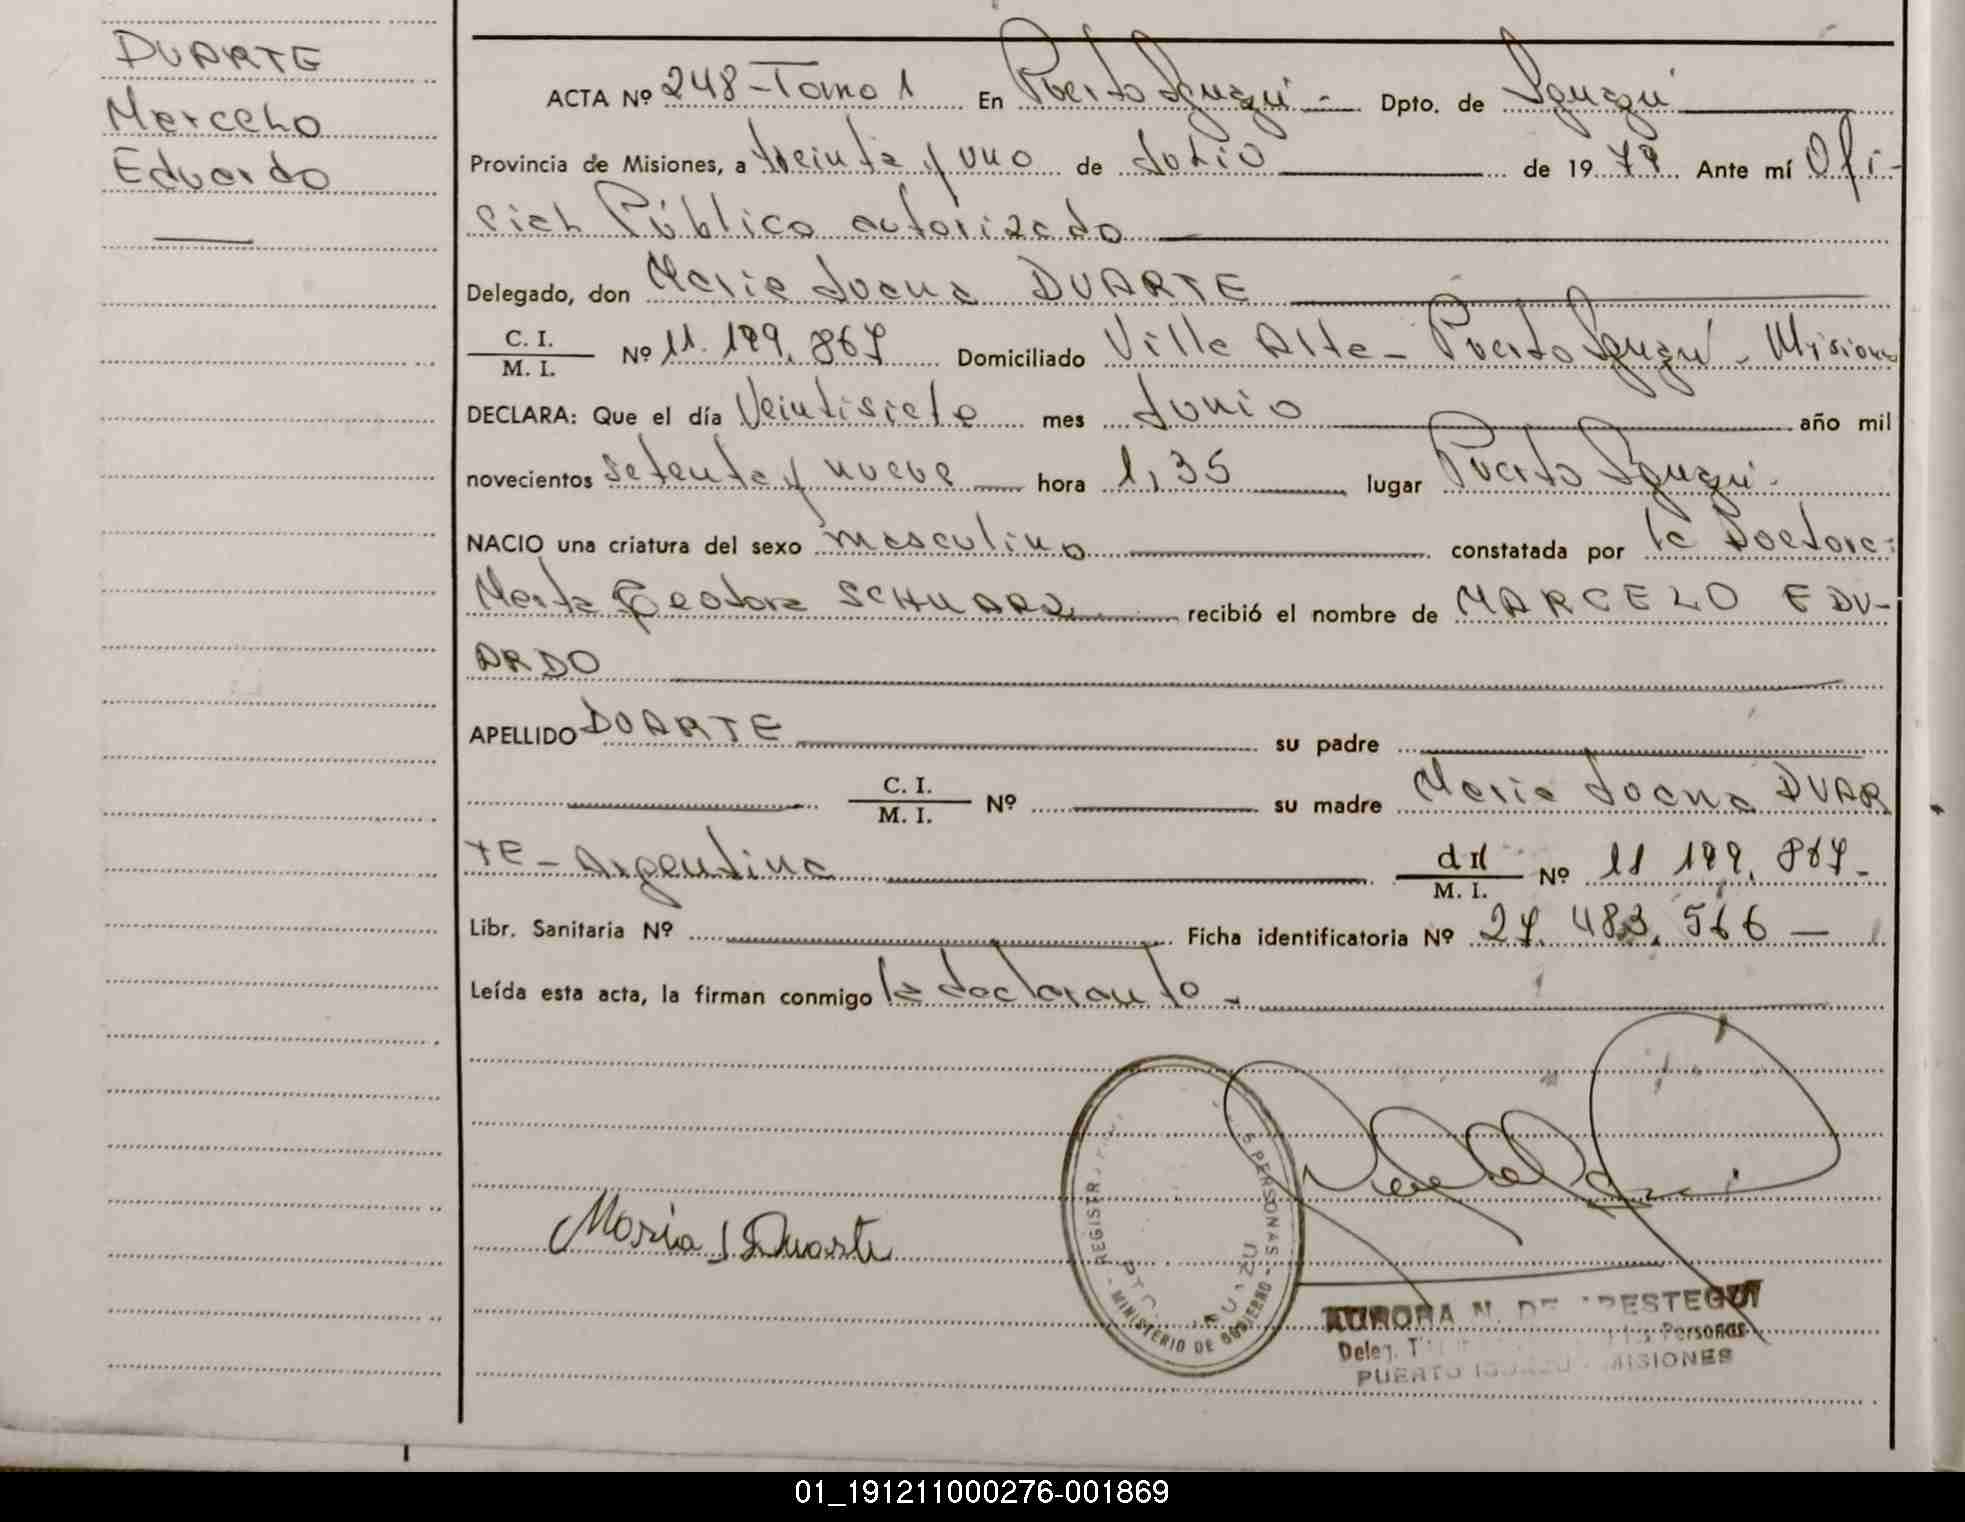 DUARTE
Marcelo
Eduardo
ACTA Nº 248 - Tomo 1 En Puerto Iguazú - Dpto. de Iguazú
Provincia de Misiones, a treinta y uno de Julio de 1979 Ante mí Ofi-
cial Público autorizado
Delegado, don Maria Juana DUARTE
C. I. / M. I. Nº 11.199.867 Domiciliado Villa Alta - Puerto Iguazú - Misiones
DECLARA: Que el día Veintisiete mes Junio año mil
novecientos setenta y nueve hora 1,35 lugar Puerto Iguazú.
NACIO una criatura del sexo masculino constatada por la Doctora:
Marta Teodora SCHWARZ recibió el nombre de MARCELO EDU-
ARDO
APELLIDO DUARTE su padre
C. I. / M. I. Nº su madre Maria Juana DUAR
TE - Argentina M. I. Nº 11 199.867-
Libr. Sanitaria Nº Ficha identificatoria Nº 27.483.566 -
Leída esta acta, la firman conmigo la declarante -
Maria J Duarte
REGISTR S PERSONAS - MINISTERIO DE GOBIERNO -
AURORA N. DE ARESTEGUI
Deleg. Personas
PUERTO IGUAZU - MISIONES
01_191211000276-001869